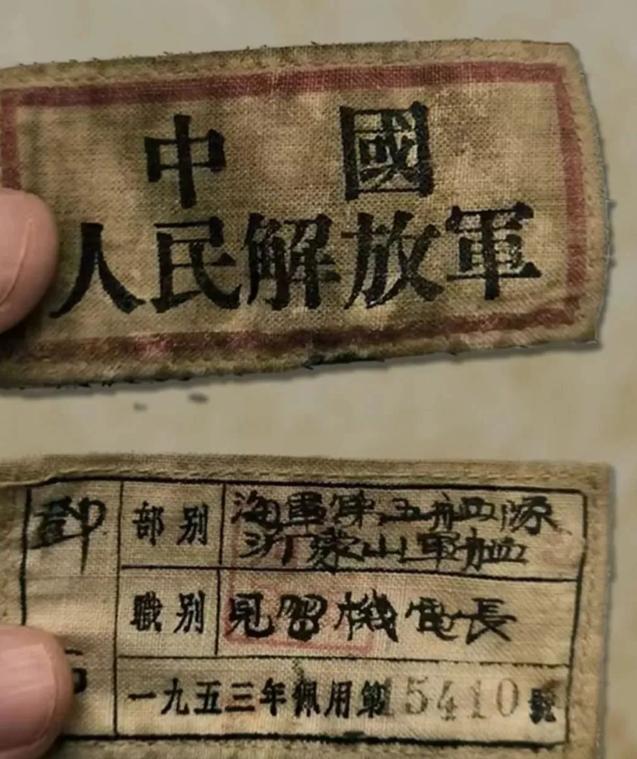 中國
人民解放軍
鄧
部别 海軍第五舰隊
沂蒙山軍舰
職别 見習機電長
一九五三年佩用第15410號